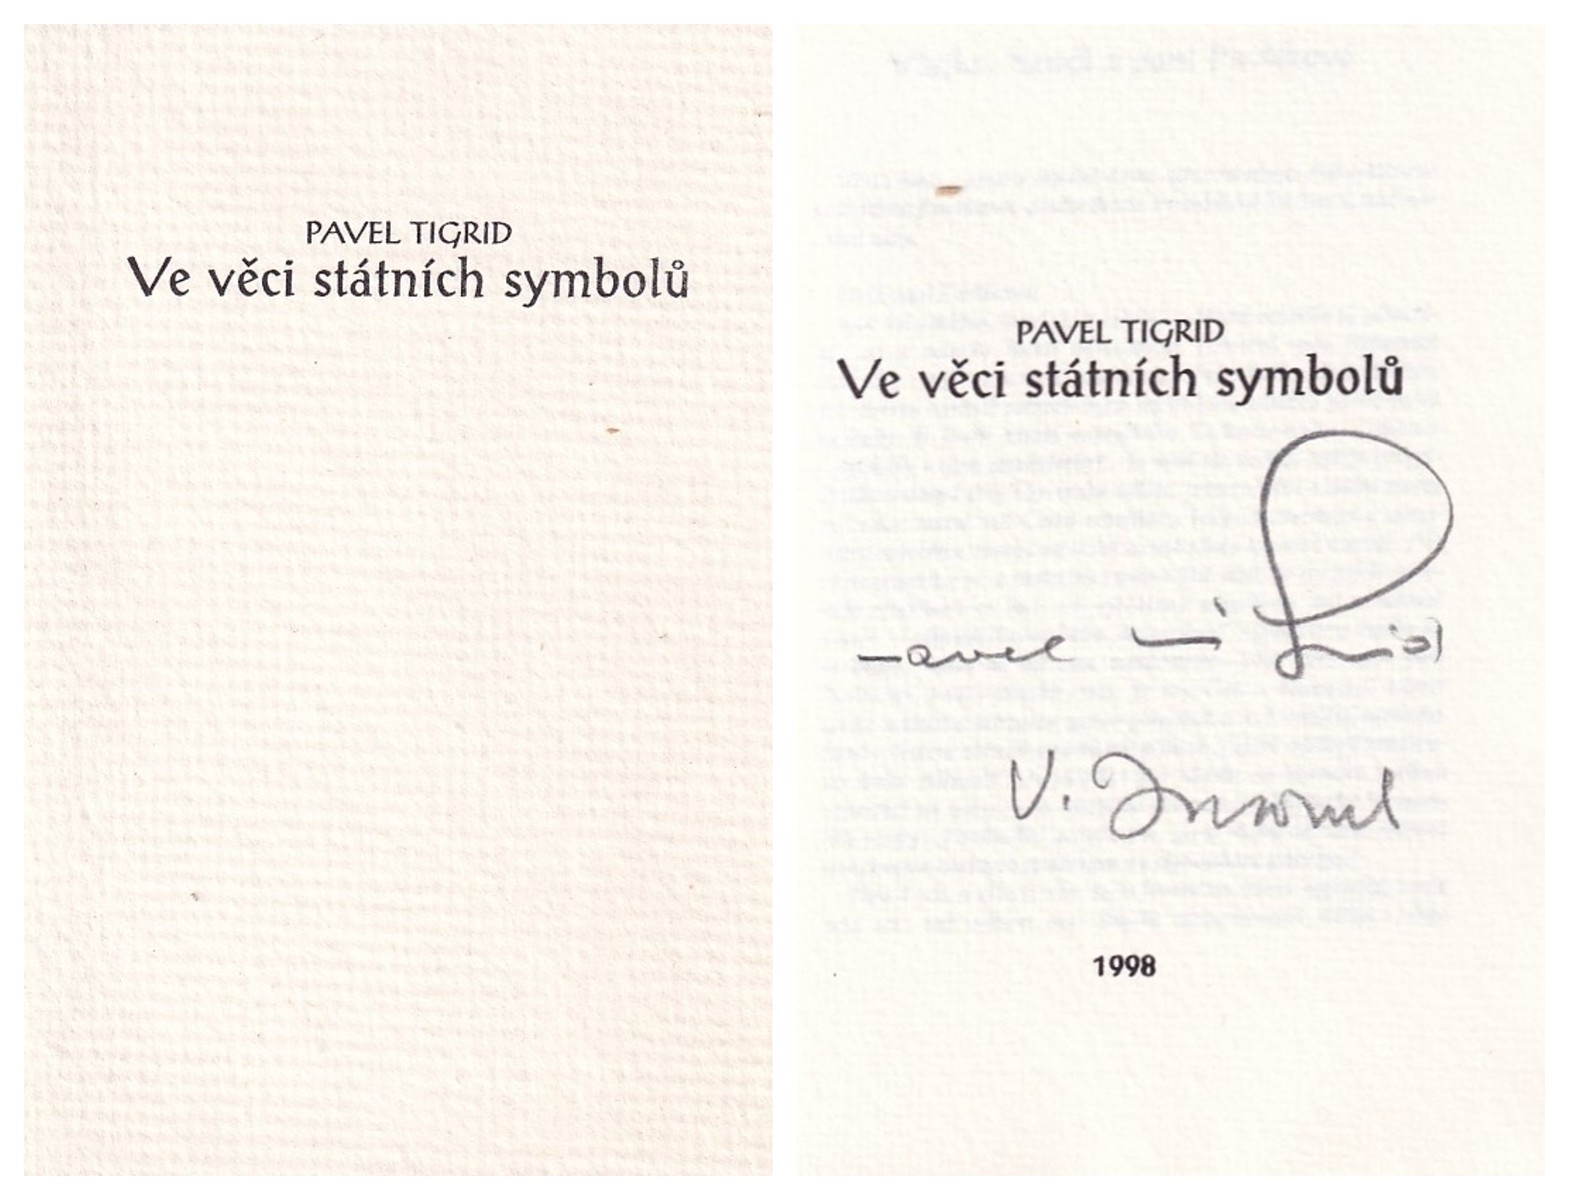 PAVEL TIGRID
Ve věci státních symbolů
PAVEL TIGRID
Ve věci státních symbolů
Pavel Tigrid
V.
1998